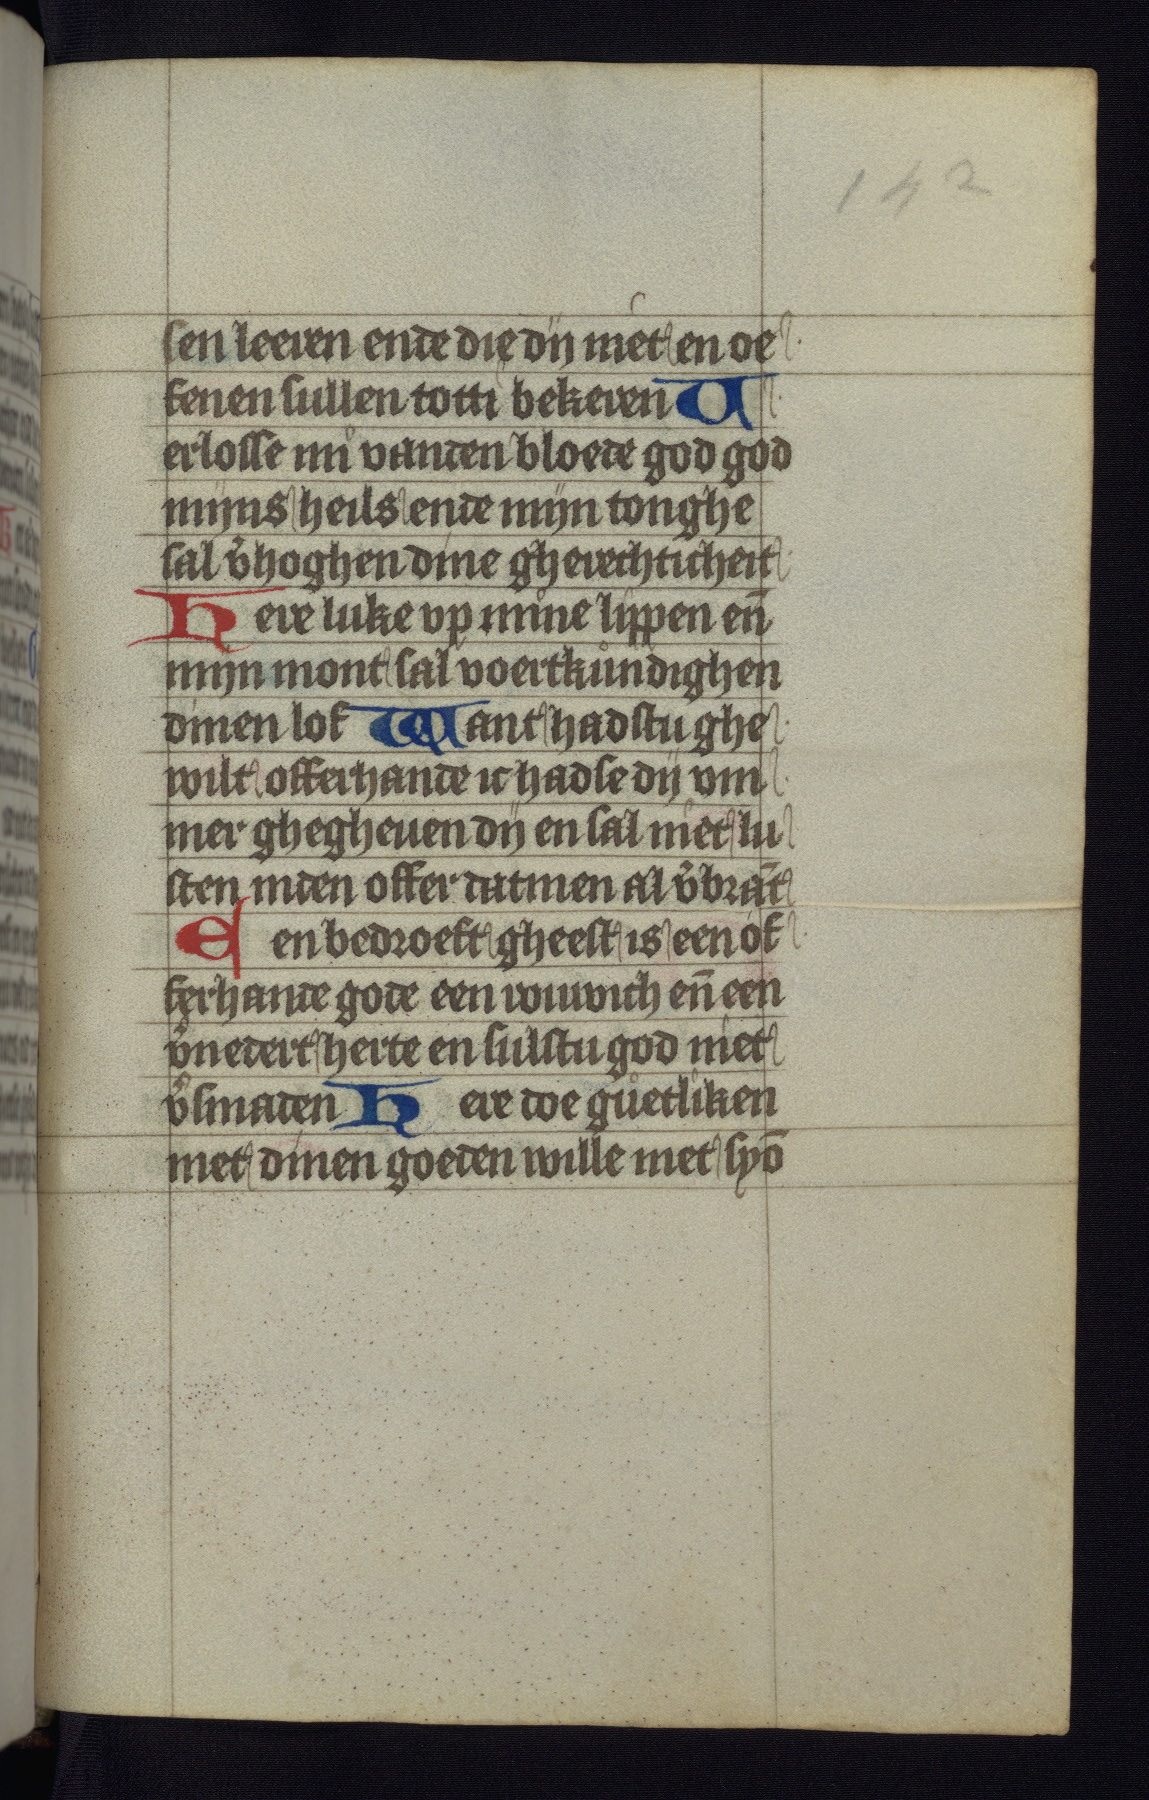 142
sen leeren ende die dij niet en oe
fenen sullen totti bekeren V
erlosse mi vanden bloede god god
mijns heils ende mijn tonghe
sal v̉hoghen dine gherechticheit
Here luke vp mine lippen en̄
mijn mont sal voertkundighen
dinen lof Want hadstu ghe
wilt offerhande ic hadse dij vm
mer ghegheuen dij en sal niet lu
sten inden offer datmen al v̉brāt
Een bedroeft gheest is een of
ferhande gode een ruwich en̄ een
v̉nedert herte en sulstu god niet
v̉smaden Here doe guetliken
met dinen goeden wille met syō